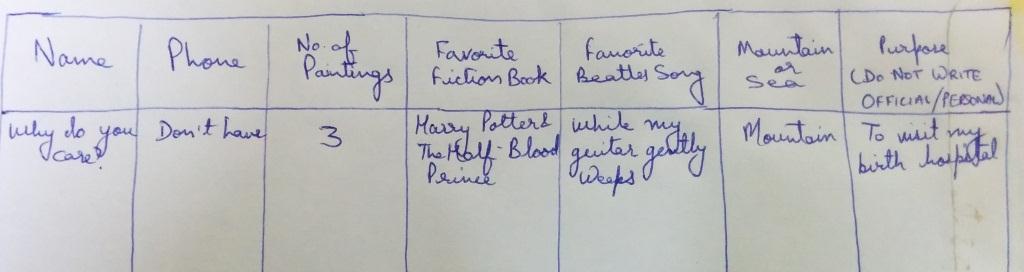 Name
Phone
No. of
Paintings
Favorite
Fiction Book
Favorite
Beatles Song
Mountain
or
Sea
Purpose
(DO NOT WRITE
OFFICIAL/PERSONAL)
Why do you
care?
Don't have
3
Harry Potter &
The Half-Blood
Prince
While my
guitar gently
Weeps
Mountain
To visit my
birth hospital